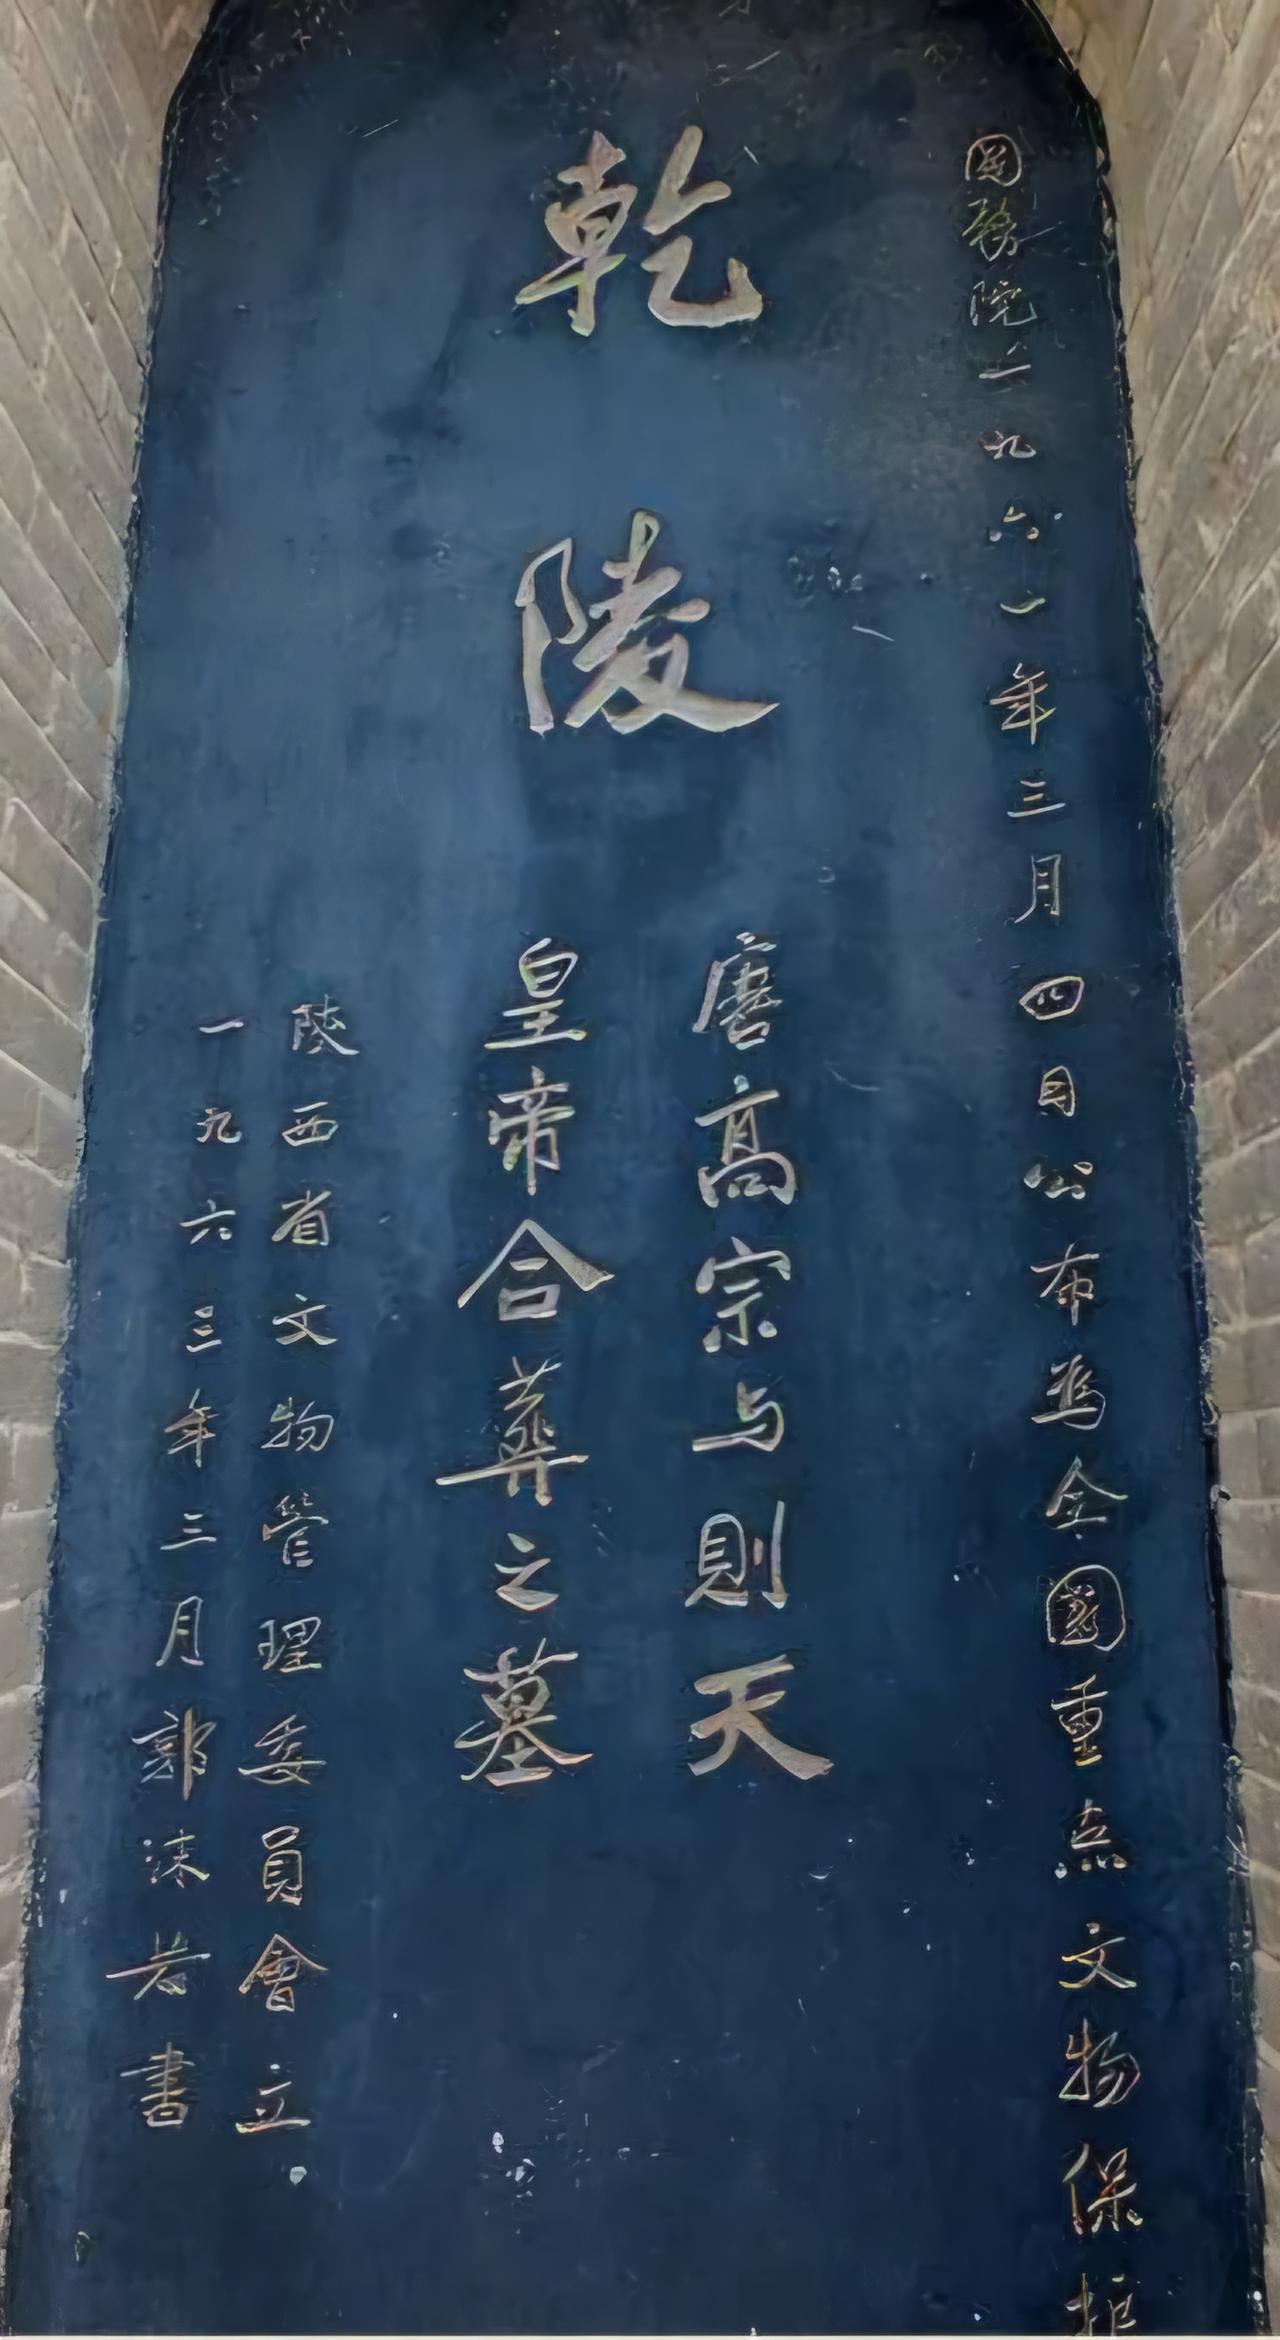 國務院一九六一年三月四日公布爲全國重点文物保护
乾陵
唐高宗与則天
皇帝合葬之墓
陕西省文物管理委員會立
一九六三年三月郭沫若書